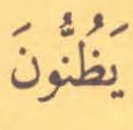 يَظُنُّونَ